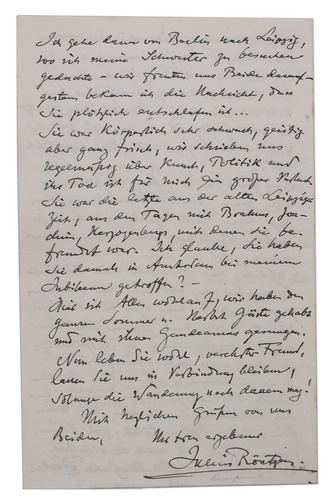 Ich gehe dann von Berlin nach Leipzig,
wo ich meine Schwester zu besuchen
gedachte – wir freuten uns Beide darauf –
gestern bekam ich die Nachricht, dass
Sie plötzlich entschlafen ist...
Sie war körperlich sehr schwach, geistig
aber ganz frisch, wir schrieben uns
regelmässig über Kunst, Politik und
ihr Tod ist für mich ein grosser Verlust.
Sie war die letzte aus der alten Leipziger
Zeit, aus den Tagen mit Brahms, Joa-
chim, Herzogenbergs, mit denen sie be-
freundet war. Ich glaube, Sie haben
Sie damals in Amsterdam bei meinem
Jubiläum getroffen? –
Hier ist Alles wohlauf, wir haben den
ganzen Sommer u. Herbst Gäste gehabt
und mit ihnen Gaudeamus
Nun leben Sie wohl, verehrter Freund,
lassen Sie uns in Verbindung bleiben,
solange die Wanderung noch dauern mag!
Mit herzlichen Grüßen von uns
Beiden, Ihr treu ergebener
Julius Röntgen.